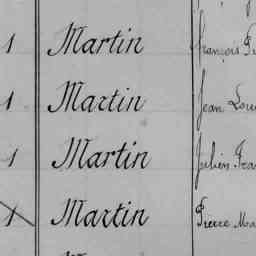 1 Martin François
1 Martin Jean Lou
1 Martin Julien Fra
1 Martin Pierre Ma